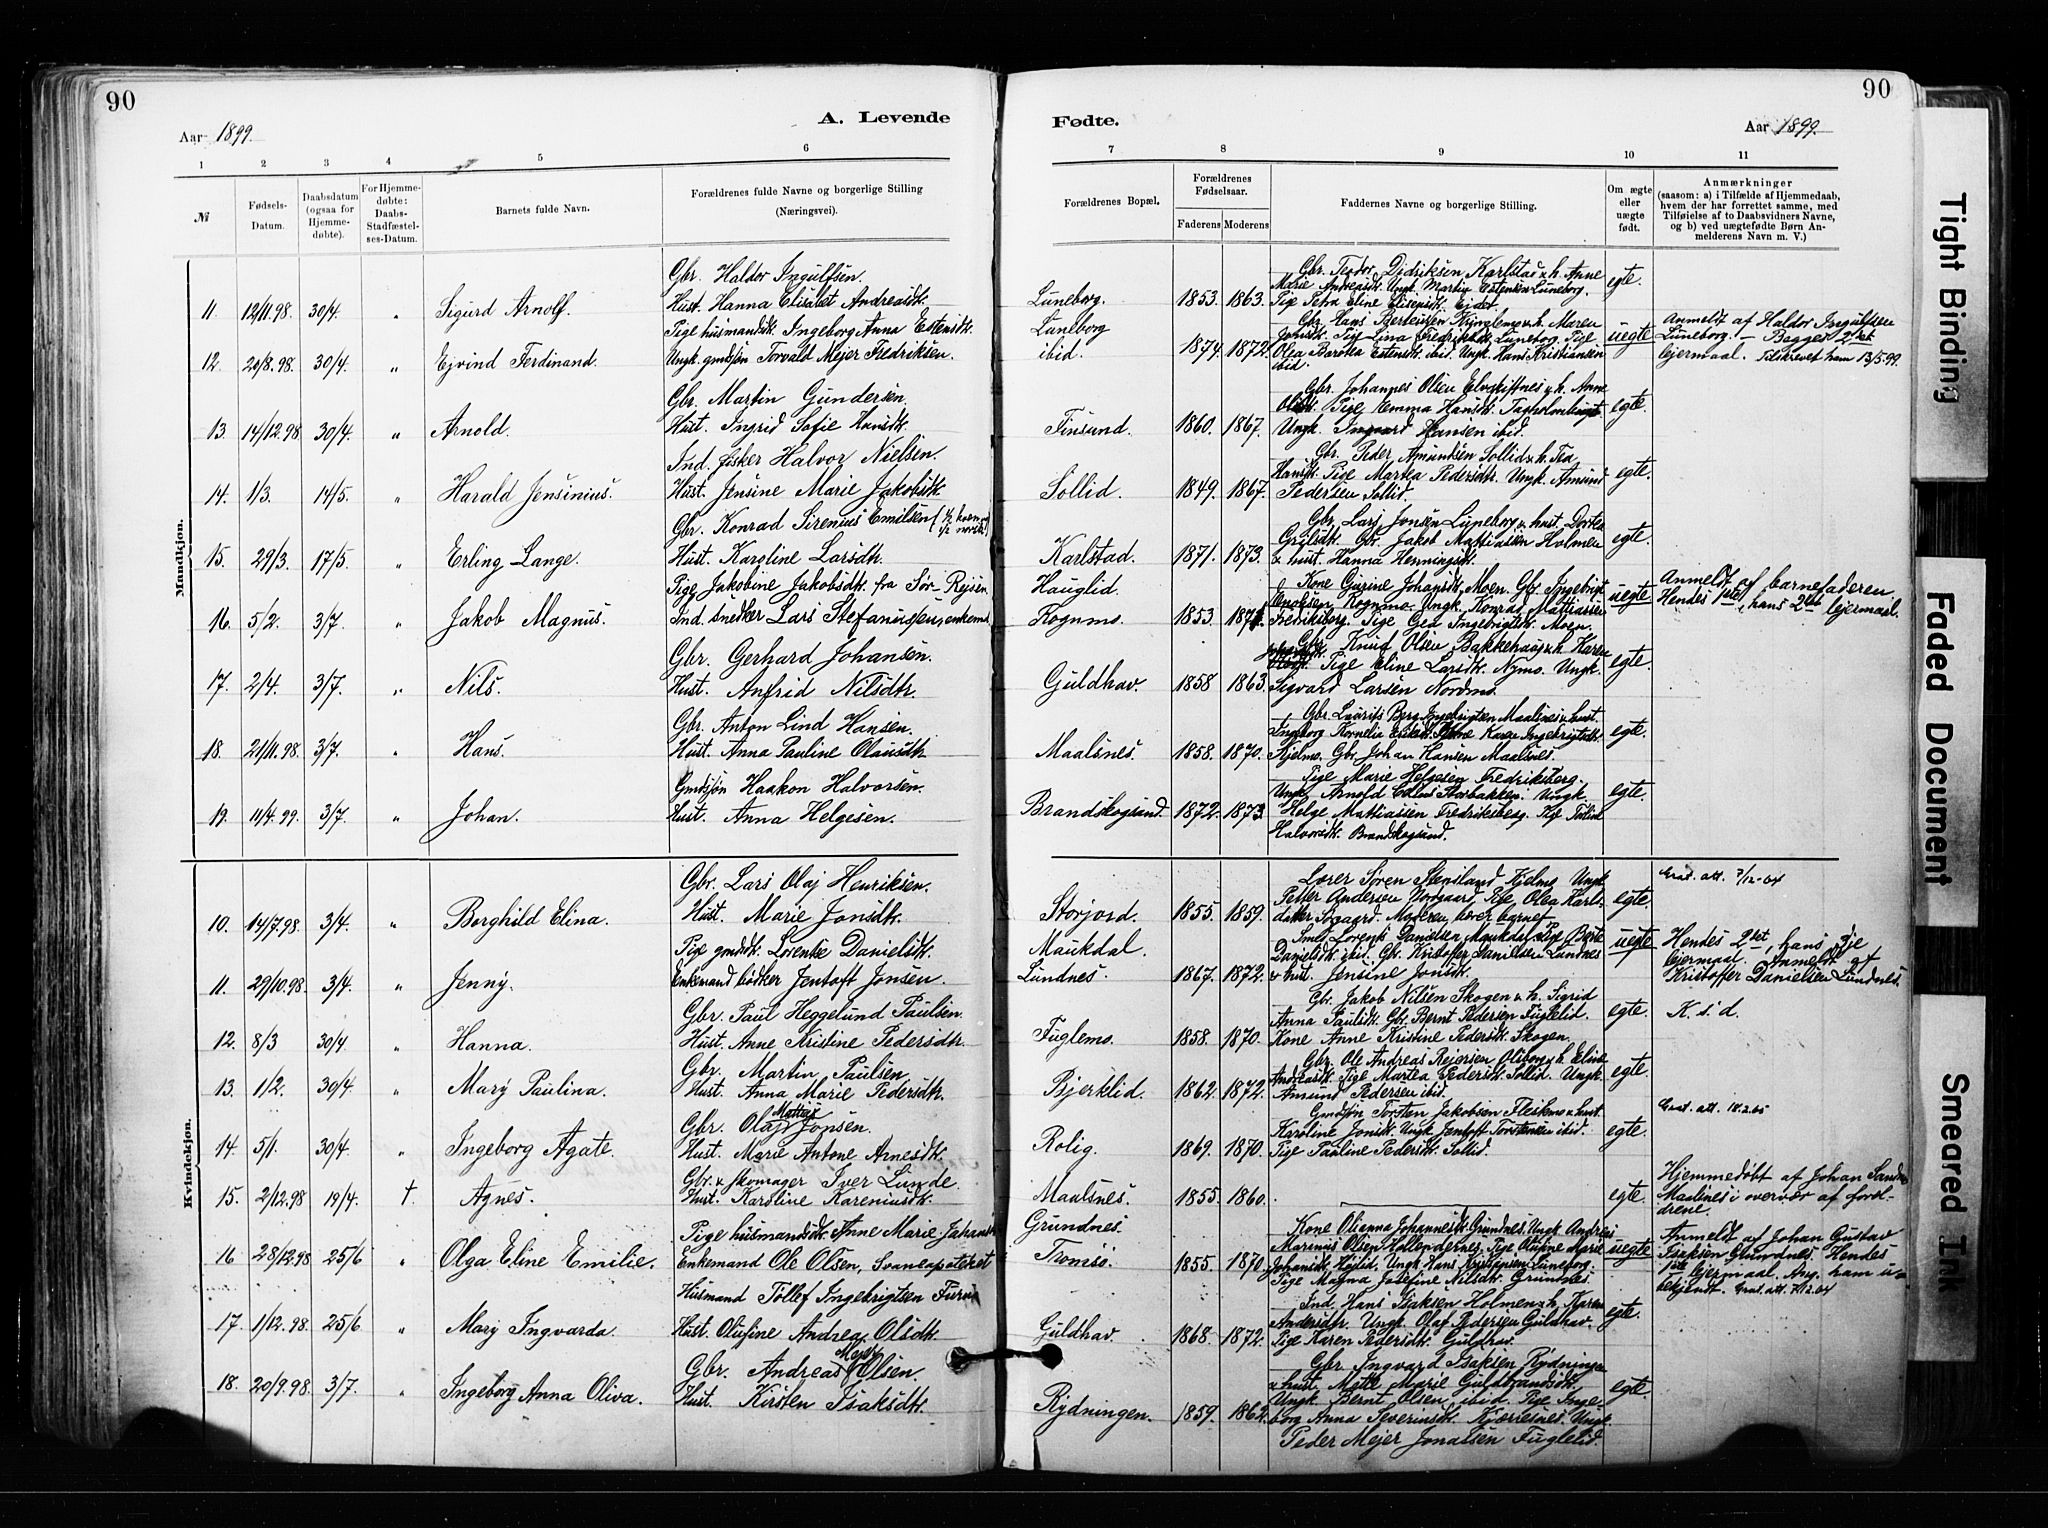 90
90
A. Levende
Fødte.
Aar 1899.
Aar 1899.
1 2 3 4 5 6
7 8 9 10 11
№
Fødsels-Datum.
Daabsdatum (ogsaa for Hjemmedøbte).
For Hjemmedøbte: Daabs-Stadfæstelses-Datum.
Barnets fulde Navn.
Forældrenes fulde Navne og borgerlige Stilling (Næringsvei).
Forældrenes Bopæl.
Forældrenes Fødselsaar.
Faderens Moderens
Faddernes Navne og borgerlige Stilling.
Om ægte eller uægte født.
Anmærkninger
(saasom: a) i Tilfælde af Hjemmedaab,
hvem der har forrettet samme, med
Tilføielse af to Daabsvidners Navne,
og b) ved uægtefødte Børn Anmelderens Navn m. V.)
Mandkjøn.
Gbr. Haldor Ingulfsen.
11. 12/11.98. 30/4. " Sigurd Arnolf. Hust. Hanna Elisabet Andreasdt.
Pige husmandsdt. Ingeborg Anna Estensdt.
12. 20/8.98. 30/4. " Ejvind Ferdinand. Ungk. gmdsøn Torvald Mejer Fredriksen.
Gbr. Martin Gundersen.
13. 14/12.98 30/4. " Arnold. Hust. Ingrid Sofie Hansdt.
Ind. fisker Halvor Nielsen.
14. 1/3. 14/5. " Harald Jensinius. Hust. Jensine Marie Jakobsdt.
Gbr. Konrad Sirenius Emilsen
15. 29/3. 17/5. " Erling Lange. Hust. Karoline Larsdtr.
Pige Jakobine Jakobsdt. fra Sør-Rejsen.
16. 5/2. 3/7. " Jakob Magnus. Ind. snedker Lars Stefanussen, enkem.
Gbr. Gerhard Johansen.
17. 2/4. 3/7. " Nils. Hust. Anfrid Nilsdtr.
Gbr. Anton Lind Hansen.
18. 21/11.98. 3/7. " Hans. Hust. Anna Pauline Olausdtr.
Gmdsøn Haakon Halvorsen.
19. 11/4.99. 3/7. " Johan. Hust. Anna Helgesen.
Kvindekjøn.
Gbr. Lars Olaj Henriksen.
10. 14/7.98 3/4. " Berghild Elina. Hust. Marie Jonsdt.
Pige gmdsdt. Lorentse Danielsdt.
11. 29/10.98. 3/4. " Jenny. Enkemand bødker Jentoft Jonsen.
Gbr. Paul Heggelund Paulsen.
12. 8/3 30/4. " Hanna. Hust. Anne Kristine Pedersdtr.
Gbr. Martin Paulsen
13. 1/2. 30/4. " Mary Paulina. Hust. Anna Marie Pedersdtr.
Gbr. Olaj Mattias Jonsen.
14. 5/1. 30/4. " Ingeborg Agate. Hust. Marie Antone Arnesdt.
Gbr. & skomager Iver Lunde.
15. 2/12.98 19/4. † Agnes. Hust. Karoline Kareniusdt.
Pige husmandsdt. Anne Marie Johansdt.
16 28/12.98 25/6 " Olga Eline Emilie. Enkemand Ole Olsen, Svaneapoteket
Husmand Tollef Ingebrigtsen
17. 1/12.98. 25/6 " Mary Ingvarda. Hust. Olufine Andrea Olsdt.
Gbr. Andreas Mejer Olsen.
18. 20/9.98. 3/7. " Ingeborg Anna Oliva. Hust. Kirsten Isaksdt.
Gbr. Teodor Didriksen Karlstad & h. Anne
Marie Andreasdt. Ungk. Martin Estensen Luneborg.
Luneborg. 1853. 1863. Pige Petra Eline Elisensdt. egte.
Luneborg Gbr. Hans Berteussen & h. Maren
Jonsdt. Pige Lina Fredriksdt. Luneborg. Pige
ibid. 1874. 1872. Olea Berotea Estensdt. ibid. Ungk. Hans Kristiansen ibid. uegte
Anmeldt af Haldor Ingulfsen
Luneborg. — Begges 2det
lejermaal. Tilskrevet ham 13/5.99.
Gbr. Johannes Olsen Elvskiftnes & h. Anne
Olsdt. Pige Emma Hansdt.
Finsund. 1860. 1867. Ungk. Ingvard Hansen ibid. egte.
Gbr. Peder Amundsen Sollid & h. Tea
Hansdt. Pige Martea Pedersdtr. Ungk. Amund
Sollid. 1849. 1867. Pedersen Sollid. egte.
Gbr. Lars Jonsen Luneborg & hust. Dortea
Gbr. Jakob Mattiassen Holmen
Karlstad. 1871. 1873. & hust. Hanna Henningsdt. egte.
Hauglid. Kone Gurine Johansdt. Moen. Gbr. Ingebrigt
Enoksen, Kognmo. Ungk. Konrad Mattiassen
Kognmo. 1853. 1871. Fredriksberg. Pige Gea Ingebrigtsdt. Moen. uegte
Anmeldt af barnefaderen.
Hendes 1ste, hans 2det lejermaal.
Gbr. Knud Olsen Bakkehaug & h. Karen
Pige Eline Larsdt. Nymo. Ungk.
Guldhav. 1858 1863. Sigvard Larsen Nordmo. egte.
Gbr. Laurits Berg Ingebrigtsen Maalsnes & hust.
Ingeborg Kornelia
Maalsnes. 1858. 1870. Kjelmo. Gbr. Johan Hansen Maalsnes. egte.
Pige Marie Helgesen Fredriksberg.
Ungk. Arnold
Brandskogsund. 1872. 1873. Helge Mattiassen Fredriksberg. Pige egte.
Halvorsdt. Brandskogsund.
Lærer Søren Stensland Kjelmo. Ungk.
Petter Andersen Nordgaard, Pige Olea Karls-
Storjord. 1855. 1859. datter Moderen bærer barnet. egte. Grat. att. 7/12-04
Maukdal. Smed Lorents Danielsen Maukdal. Pige
Danielsdt. ibid. Gbr. Kristoffer Danielsen Lundnes
Lundnes. 1867. 1872. & hust. Jensine Jonsdt. uegte
Hendes 2det, hans 3je
lejermaal. Anmeldt af
Kristoffer Danielsen Lundnes.
Gbr. Jakob Nilsen Skogen & h. Sigrid
Anna Paulsdt. Gbr. Bernt Pedersen Fuglelid.
Fuglemo. 1858. 1870. Kone Anne Kristine Pedersdt. Skogen. egte. K. s. d.
Gbr. Ole Andreas Rejersen Olsborg & h. Eline
Andreasdt. Pige Martea Pedersdt. Sollid. Ungk.
Bjerklid. 1862. 1872. Amund Pedersen ibid. egte.
Gmdsøn Torsten Jakobsen Fleskmo & hust.
Karoline Jonsdt. Ungk. Jentoft Torstensen ibid.
Rolig. 1869. 1870. Pige Pauline Pedersdt. Sollid. egte. Grat. att. 18.2.05
Maalsnes. 1855. 1860. egte.
Hjemmedøbt af Johan
Maalsnes i overvær af forældrene.
Grundnes. Kone Olianna Johannesdt. Grundnes. Ungk. Andreas
Marinus Olsen Hollendernes. Pige Olufine Marie
Tromsø. 1855. 1870. Johansdt. Højlid. Ungk. Hans Kristiansen Luneborg.
Pige Magna Josefine Nilsdt. Grundnes. uegte
Anmeldt af Johan Gustav
Isaksen Grundnes. Hendes
1ste lejermaal. Ang. ham ubekjendt. Grat. att. 7/12.04
Ind. Hans Isaksen Holmen & h. Karen
Andersdtr. Ungk. Olaf Pedersen Guldhav.
Guldhav. 1868. 1872. Pige Karen Pedersdt. Guldhav. egte.
Gbr. Ingvard Isaksen Rydningen
& hust. Mette Marie Guldbrandsdt.
Ungk. Bernt Olsen ibid. Pige Inge-
Rydningen. 1859. 1862. borg Anna Severinsdt. Kjærresnes. Ungk. egte.
Peder Mejer Jonassen Fuglelid.
Tight Binding
Faded Document
Smeared Ink